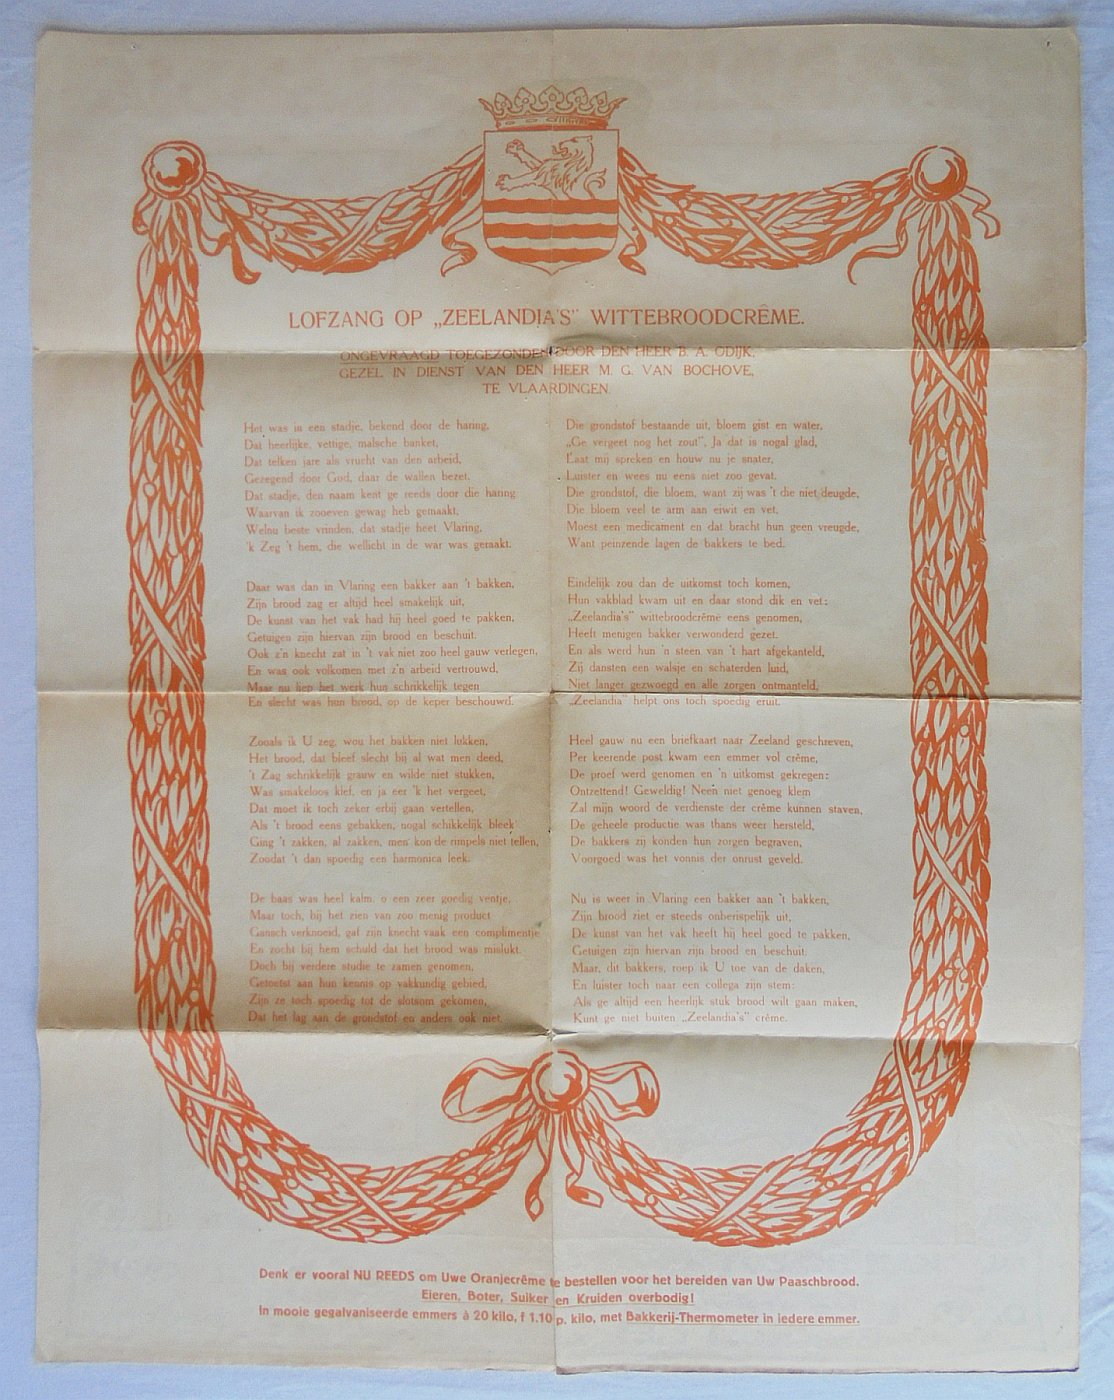 LOFZANG OP „ZEELANDIA'S" WITTEBROODCRÊME.
ONGEVRAAGD TOEGEZONDEN DOOR DEN HEER B. A. ODIJK,
GEZEL IN DIENST VAN DEN HEER M. G. VAN BOCHOVE,
TE VLAARDINGEN.
Het was in een stadje, bekend door de haring,
Dat heerlijke, vettige, malsche banket,
Dat telken jare als vrucht van den arbeid,
Gezegend door God, daar de wallen bezet,
Dat stadje, den naam kent ge reeds door die haring
Waarvan ik zooeven gewag heb gemaakt,
Welnu beste vrinden, dat stadje heet Vlaring,
'k Zeg 't hem, die wellicht in de war was geraakt.
Daar was dan in Vlaring een bakker aan 't bakken,
Zijn brood zag er altijd heel smakelijk uit,
De kunst van het vak had hij heel goed te pakken,
Getuigen zijn hiervan zijn brood en beschuit.
Ook z'n knecht zat in 't vak niet zoo heel gauw verlegen,
En was ook volkomen met z'n arbeid vertrouwd,
Maar nu liep het werk hun schrikkelijk tegen
En slecht was hun brood, op de keper beschouwd.
Zooals ik U zeg, wou het bakken niet lukken,
Het brood, dat bleef slecht bij al wat men deed,
't Zag schrikkelijk grauw en wilde niet stukken,
Was smakeloos kief, en ja eer 'k het vergeet,
Dat moet ik toch zeker erbij gaan vertellen,
Als 't brood eens gebakken, nogal schikkelijk bleek
Ging 't zakken, al zakken, men kon de rimpels niet tellen,
Zoodat 't dan spoedig een harmonica leek.
De baas was heel kalm, o een zeer goedig ventje,
Maar toch, bij het zien van zoo menig product
Gansch verknoeid, gaf zijn knecht vaak een complimentje
En zocht bij hem schuld dat het brood was mislukt.
Doch bij verdere studie te zamen genomen,
Getoetst aan hun kennis op vakkundig gebied,
Zijn ze toch spoedig tot de slotsom gekomen,
Dat het lag aan de grondstof en anders ook niet.
Die grondstof bestaande uit, bloem gist en water,
„Ge vergeet nog het zout", Ja dat is nogal glad,
Laat mij spreken en houw nu je snater,
Luister en wees nu eens niet zoo gevat.
Die grondstof, die bloem, want zij was 't die niet deugde,
Die bloem veel te arm aan eiwit en vet,
Moest een medicament en dat bracht hun geen vreugde,
Want peinzende lagen de bakkers te bed.
Eindelijk zou dan de uitkomst toch komen,
Hun vakblad kwam uit en daar stond dik en vet:
„Zeelandia's" wittebroodcrême eens genomen,
Heeft menigen bakker verwonderd gezet.
En als werd hun 'n steen van 't hart afgekanteld,
Zij dansten een walsje en schaterden luid,
Niet langer gezwoegd en alle zorgen ontmanteld,
„Zeelandia" helpt ons toch spoedig eruit.
Heel gauw nu een briefkaart naar Zeeland geschreven,
Per keerende post kwam een emmer vol crême,
De proef werd genomen en 'n uitkomst gekregen:
Ontzettend! Geweldig! Neen niet genoeg klem
Zal mijn woord de verdienste der crême kunnen staven,
De geheele productie was thans weer hersteld,
De bakkers zij konden hun zorgen begraven,
Voorgoed was het vonnis der onrust geveld.
Nu is weer in Vlaring een bakker aan 't bakken,
Zijn brood ziet er steeds onberispelijk uit,
De kunst van het vak heeft hij heel goed te pakken,
Getuigen zijn hiervan zijn brood en beschuit.
Maar, dit bakkers, roep ik U toe van de daken,
En luister toch naar een collega zijn stem:
Als ge altijd een heerlijk stuk brood wilt gaan maken,
Kunt ge niet buiten „Zeelandia's" crême.
Denk er vooral NU REEDS om Uwe Oranjecrême te bestellen voor het bereiden van Uw Paaschbrood.
Eieren, Boter, Suiker en Kruiden overbodig!
In mooie gegalvaniseerde emmers à 20 kilo, f 1.10 p. kilo, met Bakkerij-Thermometer in iedere emmer.